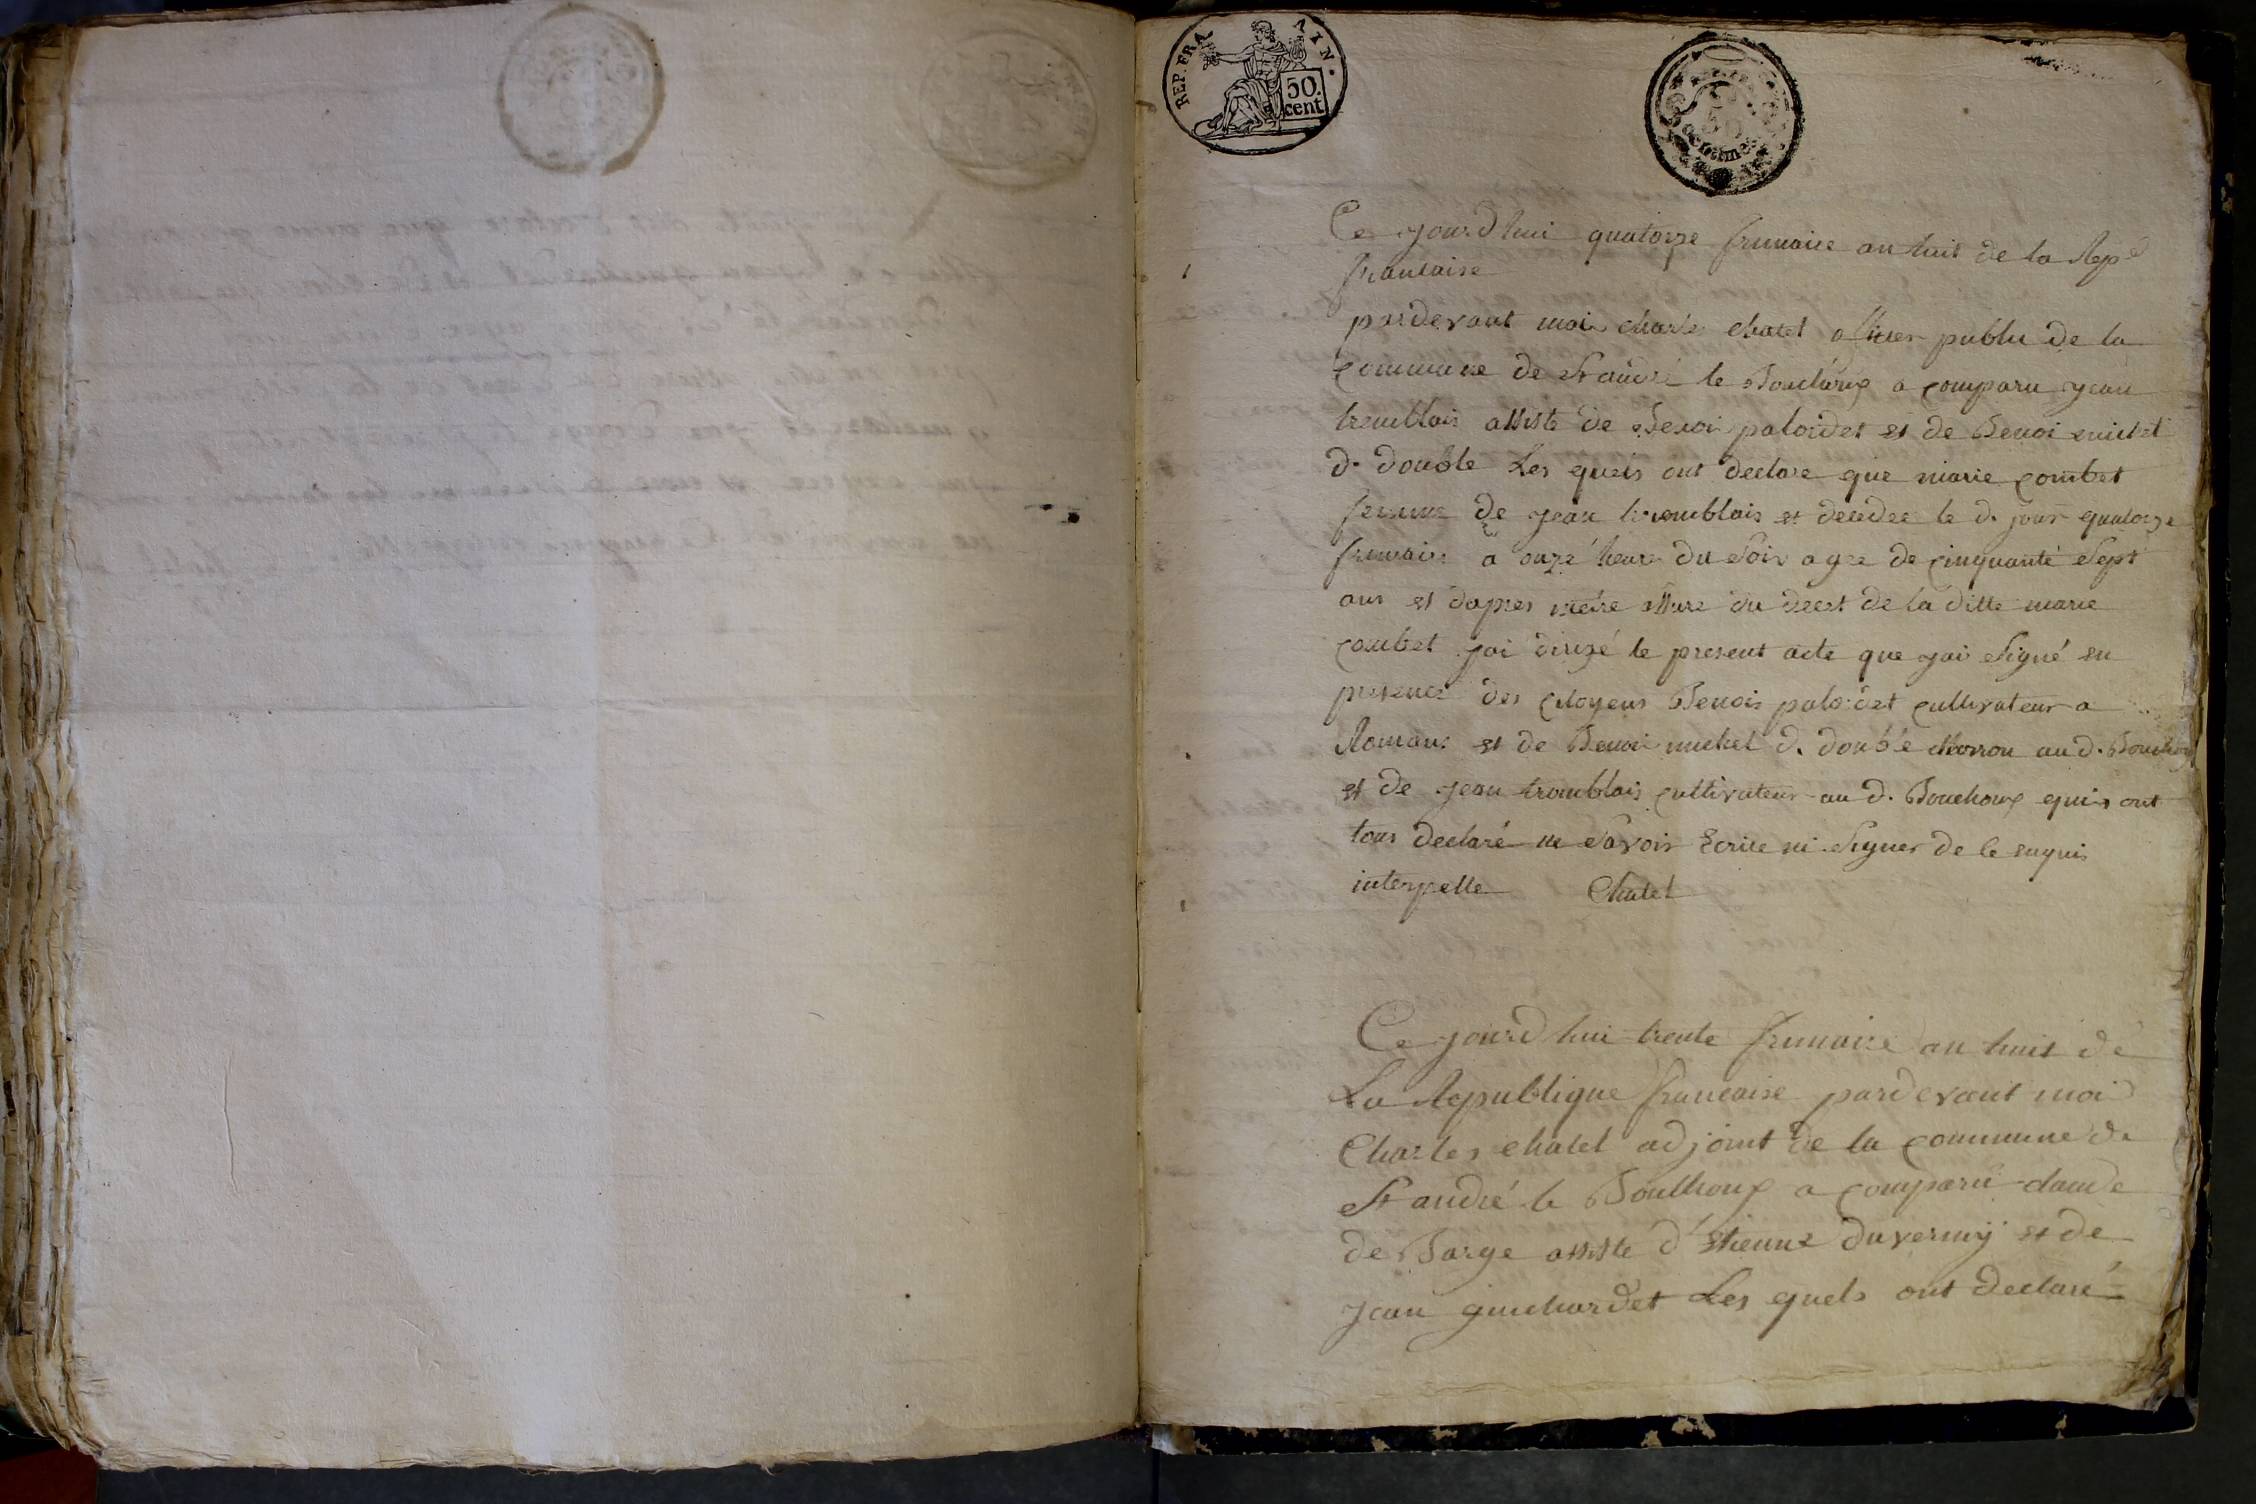 REP. FRA
50.
cent
Ce jourdhui quatorze frimaire an huit de la Rep.e
francaise
pardevant moi charle chatel officier public de la
commune de St andré le Bouchoux a comparu jean
tremblais assisté de Benoi paloidet et de Benoi michel
d. double Les quels ont declare que marie combet
femme de jean tremblais et decedee le d. jour quatorze
frimaire a onze heure du soir agee de cinquante sept
ans et dapres metre assure du deces de la ditte marie
combet jai dirigé le present acte que jai signé en
presence des citoyens Benois paloidet cultivateur a
Romans et de Benoi michel d. double au d. Bouchoux
et de jean tromblais cultivateur au d. Bouchoux quis ont
tous declaré ne savoir Ecrire ni signer de ce enquis
interpelle Chatel
Ce jourd hui trente frimaire an huit de
La Republique francaise pardevant moi
Charles chatel adjoint de la commune de
St andré le Bouchoux a comparu claude
de Barge assisté d'Etienne duverney et de
jean guichardet Les quels ont declaré